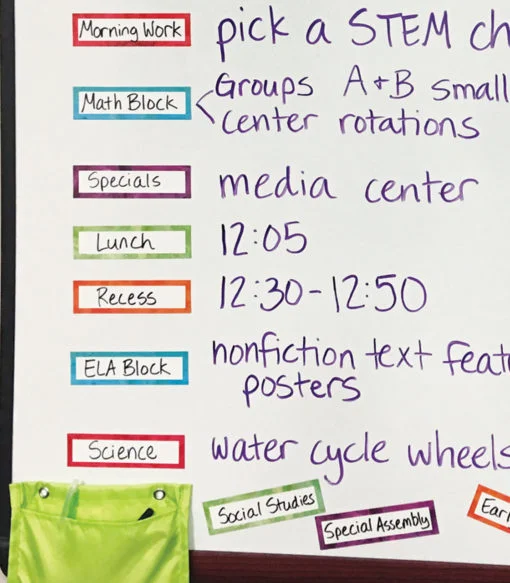 Morning Work pick a STEM
Math Block Groups A+B small
center rotations
Specials media center
Lunch 12:05
Recess 12:30-12:50
ELA Block nonfiction text
posters
Science water cycle wheels
Social Studies
Special Assembly